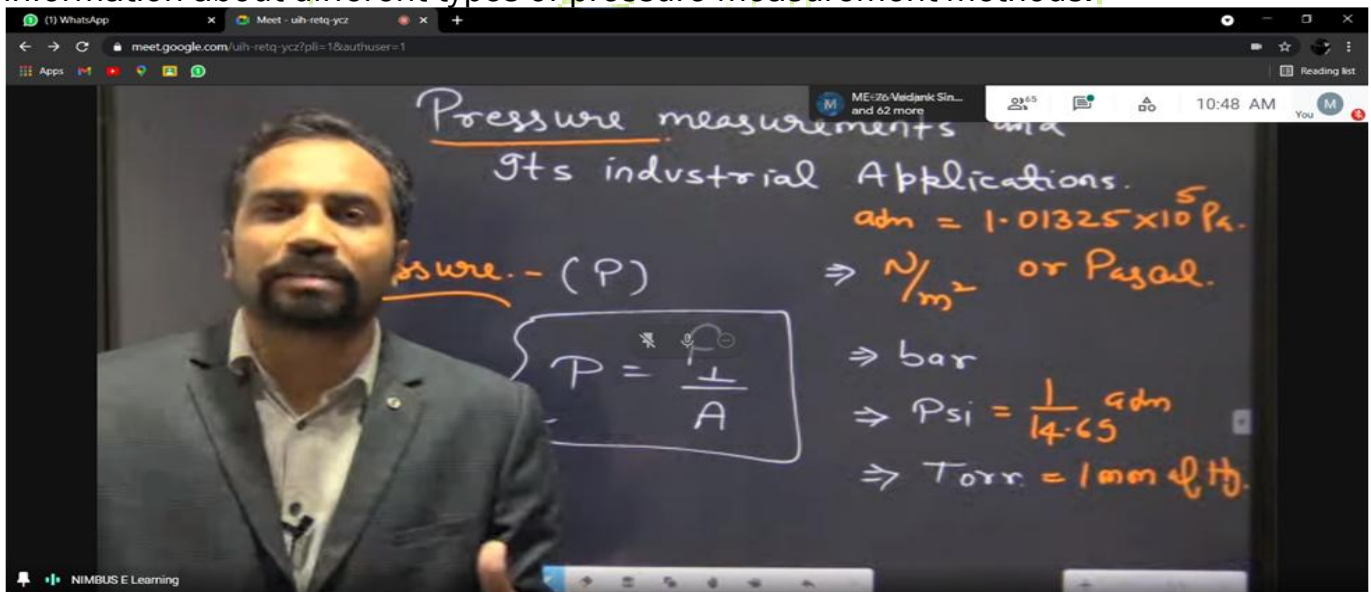 information about different types of pressure measurement methods.
(1) WhatsApp
Meet - uih-retq-ycz
meet.google.com/uih-retq-ycz?pli=1&authuser=1
Apps
Reading list
ME-76-Vedank Sin...
and 62 more
65
10:48 AM
You
M
Pressure measurements and
Its industrial Applications.
atm = 1.01325 × 10⁵ Pa.
ssure. - (P)
⇒ N/m² or Pascal.
P = F/A
⇒ bar
⇒ Psi = 1/14.69 atm
⇒ Torr = 1 mm of Hg.
NIMBUS E Learning